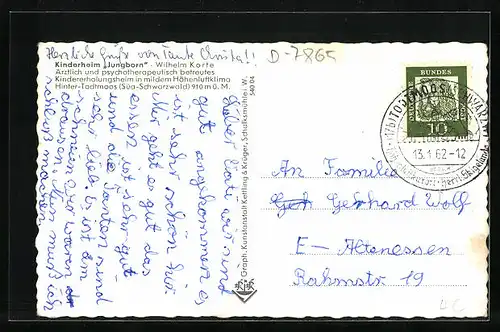 Herzliche Grüße von Tante Christa!!
D-7865
Kinderheim „Jungborn“ · Wilhelm Korte
Ärztlich und psychotherapeutisch betreutes
Kindererholungsheim in mildem Höhenluftklima
Hinter-Todtmoos (Süd-Schwarzwald) 910 m ü. M.
Lieber Vati wir sind
gut angekommen es
ist sehr schön hir
Mir geht es gut das
essen ist sehr gut
und die Tanten sind
sehr lieb. Es ist
draussen. Nun muß ich
schluß machen
Graph. Kunstanstalt Kettling & Krüger, Schalksmühle i. W.
540 04
DEUTSCHE
BUNDESPOST
10
TODTMOOS (SCHWARZW)
13.1.62-12
An Familie
Gerhard Wolf
E- Altenessen
Rahmstr 19